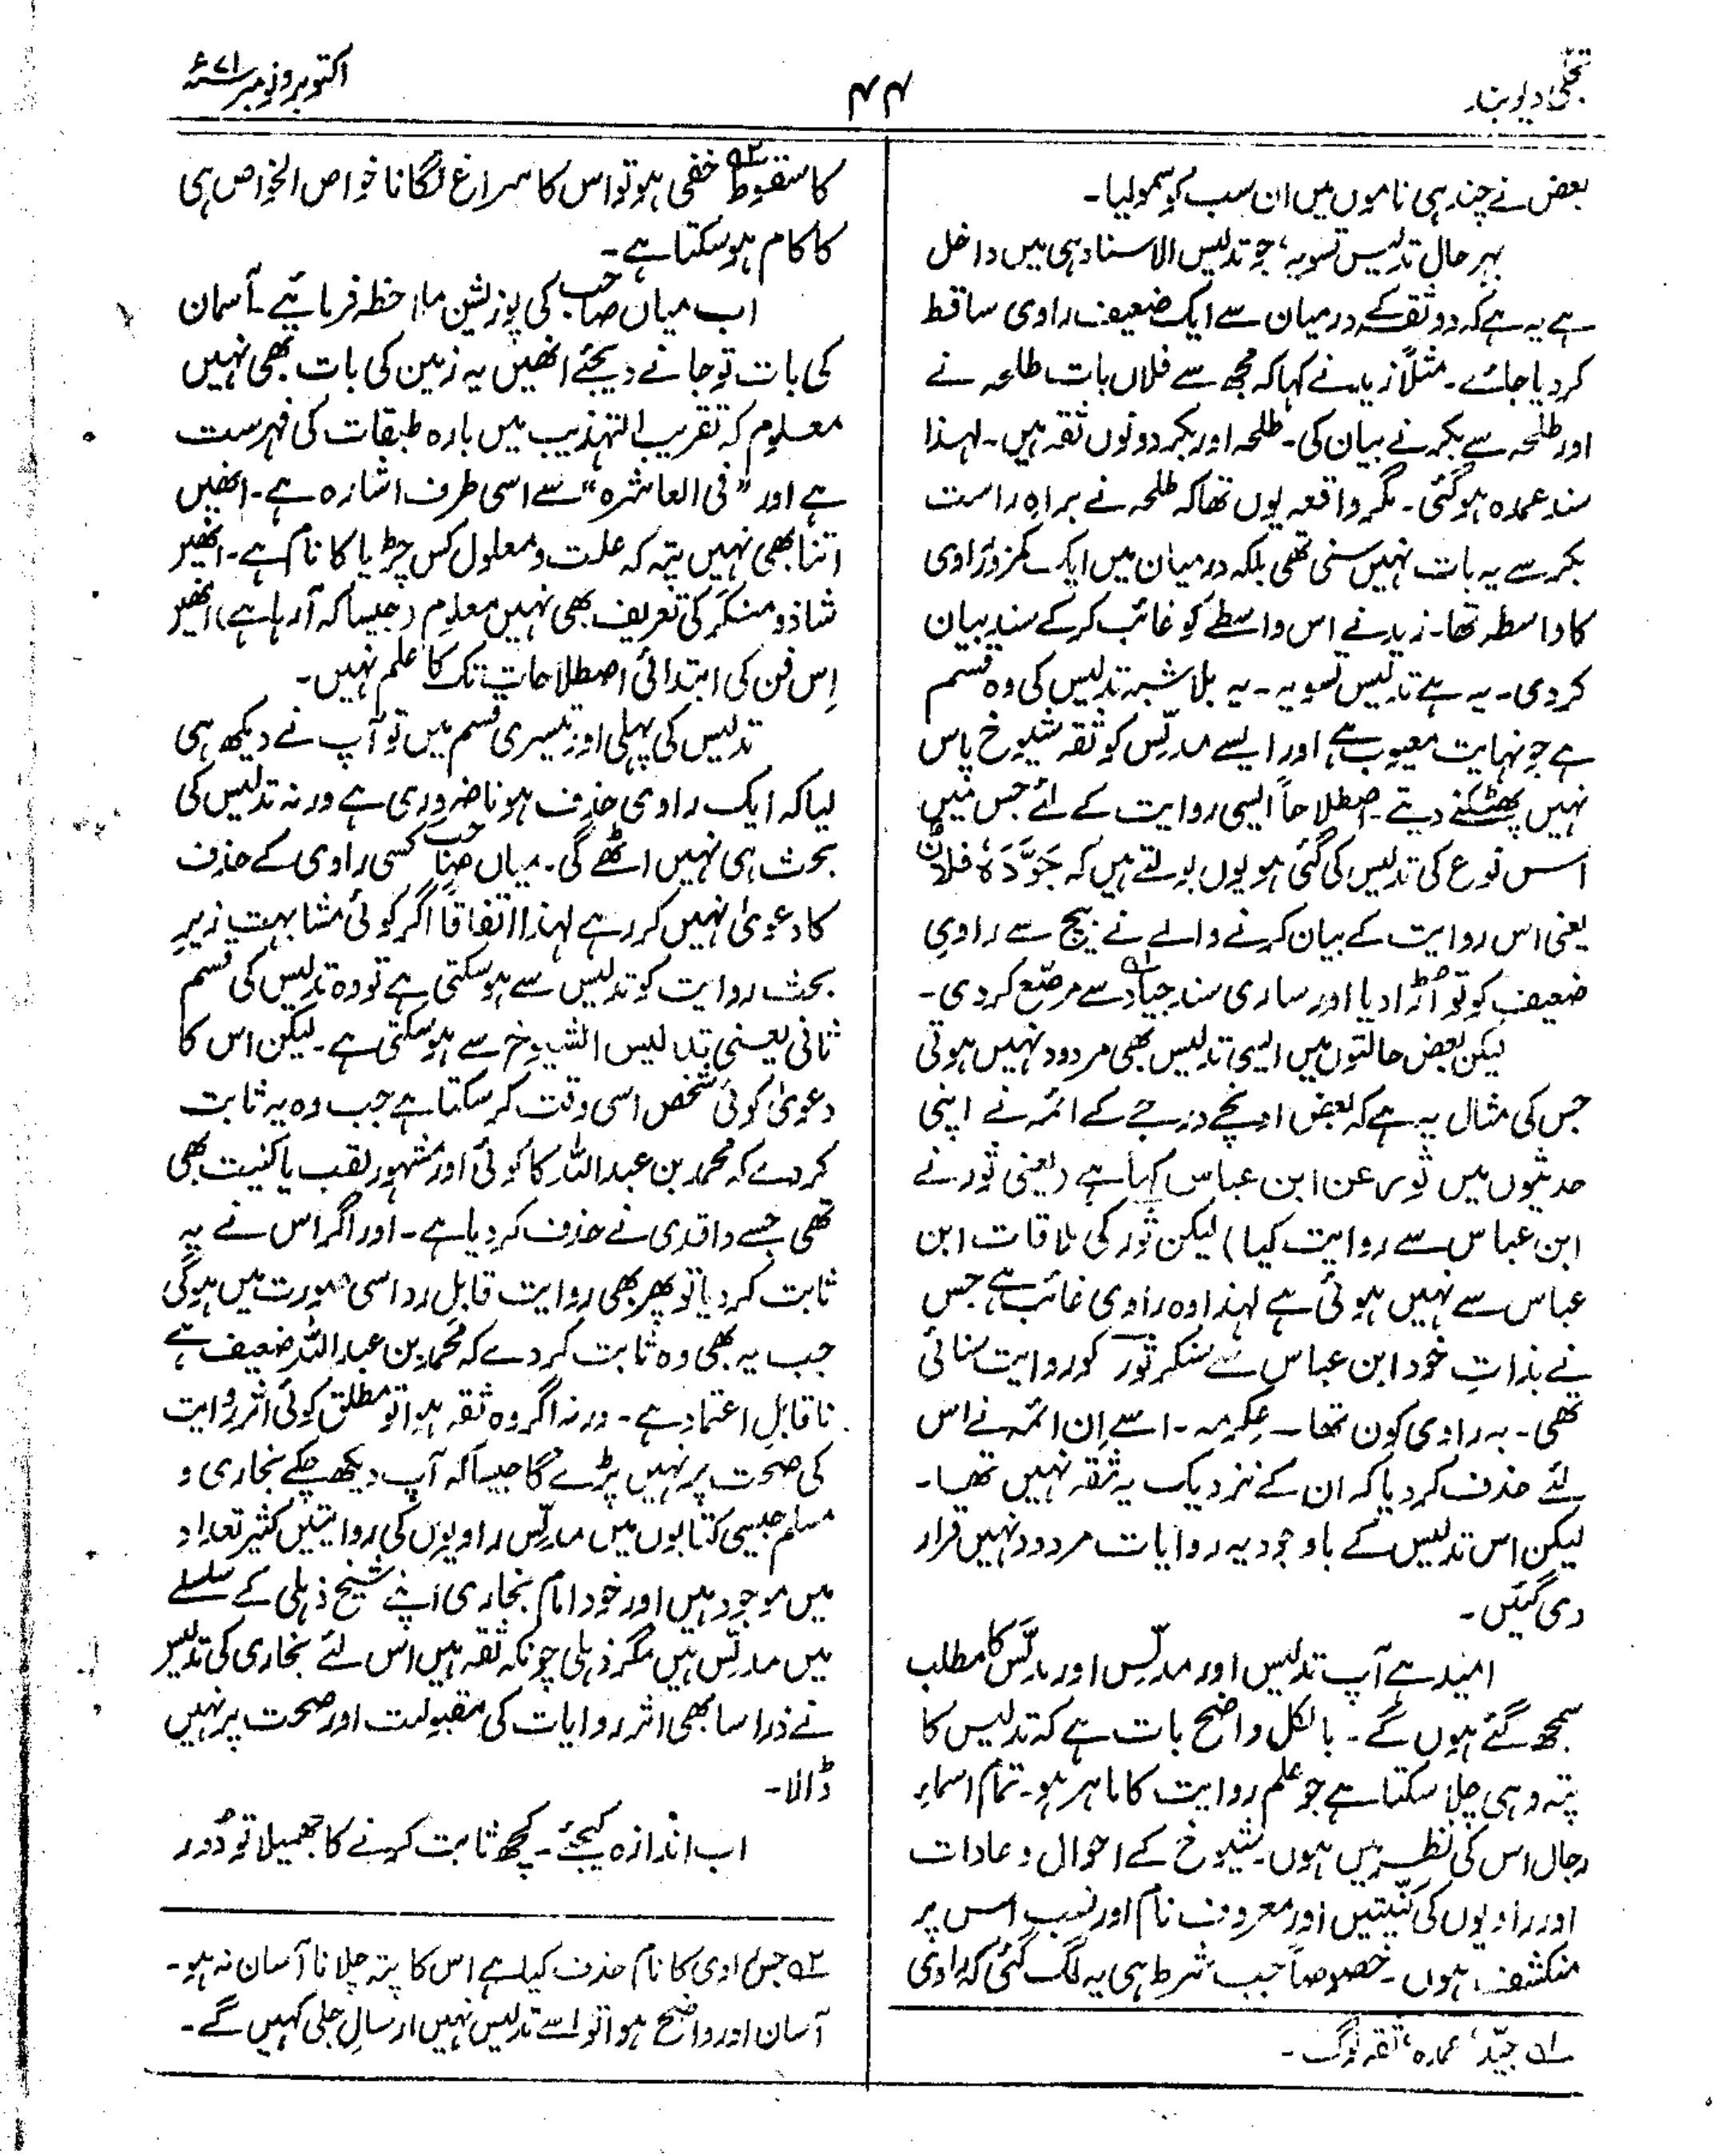 تجلّی دیوبند
۴۴
اکتوبر و نومبر ۷۱ء
بعض نے چند ہی ناموں میں ان سب کو سمولیا۔
بہر حال تدلیس تسویہ، جو تدلیس الاسناد ہی میں داخل
ہے یہ ہے کہ دو ثقہ کے درمیان سے ایک ضعیف راوی ساقط
کر دیا جائے۔ مثلاً زید نے کہا کہ مجھ سے فلاں بات طلحہ نے
اور طلحہ سے بکر نے بیان کی۔ طلحہ اور بکر دونوں ثقہ ہیں۔ لہذا
سند عمدہ ہوگئی۔ مگر واقعہ یوں تھا کہ طلحہ نے براہِ راست
بکر سے یہ بات نہیں سنی تھی بلکہ درمیان میں ایک کمزور راوی
کا واسطہ تھا۔ زید نے اس واسطے کو غائب کر کے سند بیان
کردی۔ یہ ہے تدلیس تسویہ۔ یہ بلا شبہ تدلیس کی وہ قسم
ہے جو نہایت معیوب ہے اور ایسے مدلِّس کو ثقہ شیوخ پاس
نہیں پھٹکنے دیتے۔ اصطلاحاً ایسی روایت کے لئے جس میں
اس نوع کی تدلیس کی گئی ہو یوں بولتے ہیں کہ جَوَّدَہٗ فلانٌ
یعنی اس روایت کے بیان کرنے والے نے بیچ سے راویِ
ضعیف کو تو اُڑا دیا اور ساری سند جیاد۱ سے مرصّع کردی۔
لیکن بعض حالتوں میں ایسی تدلیس بھی مردود نہیں ہوتی
جس کی مثال یہ ہے کہ بعض اونچے درجے کے ائمہ نے اپنی
حدیثوں میں ثور عن ابن عباس کہا ہے (یعنی ثور نے
ابن عباس سے روایت کیا) لیکن ثور کی ملاقات ابن
عباس سے نہیں ہوئی ہے لہذا وہ راوی غائب ہے جس
نے بذاتِ خود ابن عباس سے سنکر ثور کو روایت سنائی
تھی۔ یہ راوی کون تھا ۔ عکرمہ۔ اسے اِن ائمہ نے اس
لئے حذف کر دیا کہ ان کے نزدیک یہ ثقہ نہیں تھا۔
لیکن اس تدلیس کے باوجود یہ روایات مردود نہیں قرار
دی گئیں۔
امید ہے آپ تدلیس اور مدلِّس اور مدلَّس کا مطلب
سمجھ گئے ہوں گے۔ بالکل واضح بات ہے کہ تدلیس کا
پتہ وہی چلا سکتا ہے جو علم روایت کا ماہر ہو۔ تمام اسماءِ
رجال اس کی نظر میں ہوں۔ شیوخ کے احوال و عادات
اور راویوں کی کنیتیں اور معروف نام اور نسب اس پر
منکشف ہوں۔ خصوصاً جب شرط ہی یہ لگ گئی کہ راوی
۱ جیّد، عمدہ، ثقہ لوگ۔
کا سقوط۲ خفی ہو تو اس کا سراغ لگانا خواص الخواص ہی
کا کام ہو سکتا ہے۔
اب میاں صاحب کی پوزیشن ملاحظہ فرمائیے۔ آسمان
کی بات تو جانے دیجئے انھیں یہ زمین کی بات بھی نہیں
معلوم کہ تقریب التہذیب میں بارہ طبقات کی فہرست
ہے اور "فی العاشرہ" سے اسی طرف اشارہ ہے۔ انھیں
اتنا بھی نہیں پتہ کہ علت و معلول کس چڑیا کا نام ہے۔ انھیں
شاذ و منکر کی تعریف بھی نہیں معلوم (جیسا کہ آرہا ہے) انھیں
اِس فن کی ابتدائی اصطلاحات تک کا علم نہیں۔
تدلیس کی پہلی اور تیسری قسم میں تو آپ نے دیکھ ہی
لیا کہ ایک راوی حذف ہونا ضروری ہے ورنہ تدلیس کی
بحث ہی نہیں اٹھے گی۔ میاں صاحب کسی راوی کے حذف
کا دعویٰ نہیں کر رہے لہذا اتفاقاً اگر کوئی مشابہت زیرِ
بحث روایت کو تدلیس سے ہو سکتی ہے تو وہ تدلیس کی قسم
ثانی یعنی تدلیس الشیوخ سے ہو سکتی ہے۔ لیکن اس کا
دعویٰ کوئی شخص اسی وقت کر سکتا ہے جب وہ یہ ثابت
کردے کہ محمد بن عبداللہ کا کوئی اور مشہور لقب یا کنیت بھی
تھی جسے واقدی نے حذف کر دیا ہے۔ اور اگر اس نے یہ
ثابت کر دیا تو پھر بھی روایت قابلِ رد اسی صورت میں ہوگی
جب یہ بھی وہ ثابت کردے کہ محمد بن عبداللہ ضعیف ہے
ناقابلِ اعتماد ہے۔ ورنہ اگر وہ ثقہ ہوا تو مطلق کوئی اثر روایت
کی صحت پر نہیں پڑے گا جیسا کہ آپ دیکھ چکے بخاری و
مسلم جیسی کتابوں میں مدلِّس راویوں کی روایتیں کثیر تعداد
میں موجود ہیں اور خود امام بخاری اپنے شیخ ذہلی کے سلسلے
میں مدلِّس ہیں مگر ذہلی چونکہ ثقہ ہیں اس لئے بخاری کی تدلیس
نے ذرا سا بھی اثر روایات کی مقبولیت اور صحت پر نہیں
ڈالا۔
اب اندازہ کیجئے۔ کچھ ثابت کرنے کا جھمیلا تو دُور
۲ جس راوی کا نام حذف کیا ہے اس کا پتہ چلانا آسان نہ ہو۔
آسان اور واضح ہوا تو اسے تدلیس نہیں ارسالِ جلی کہیں گے۔